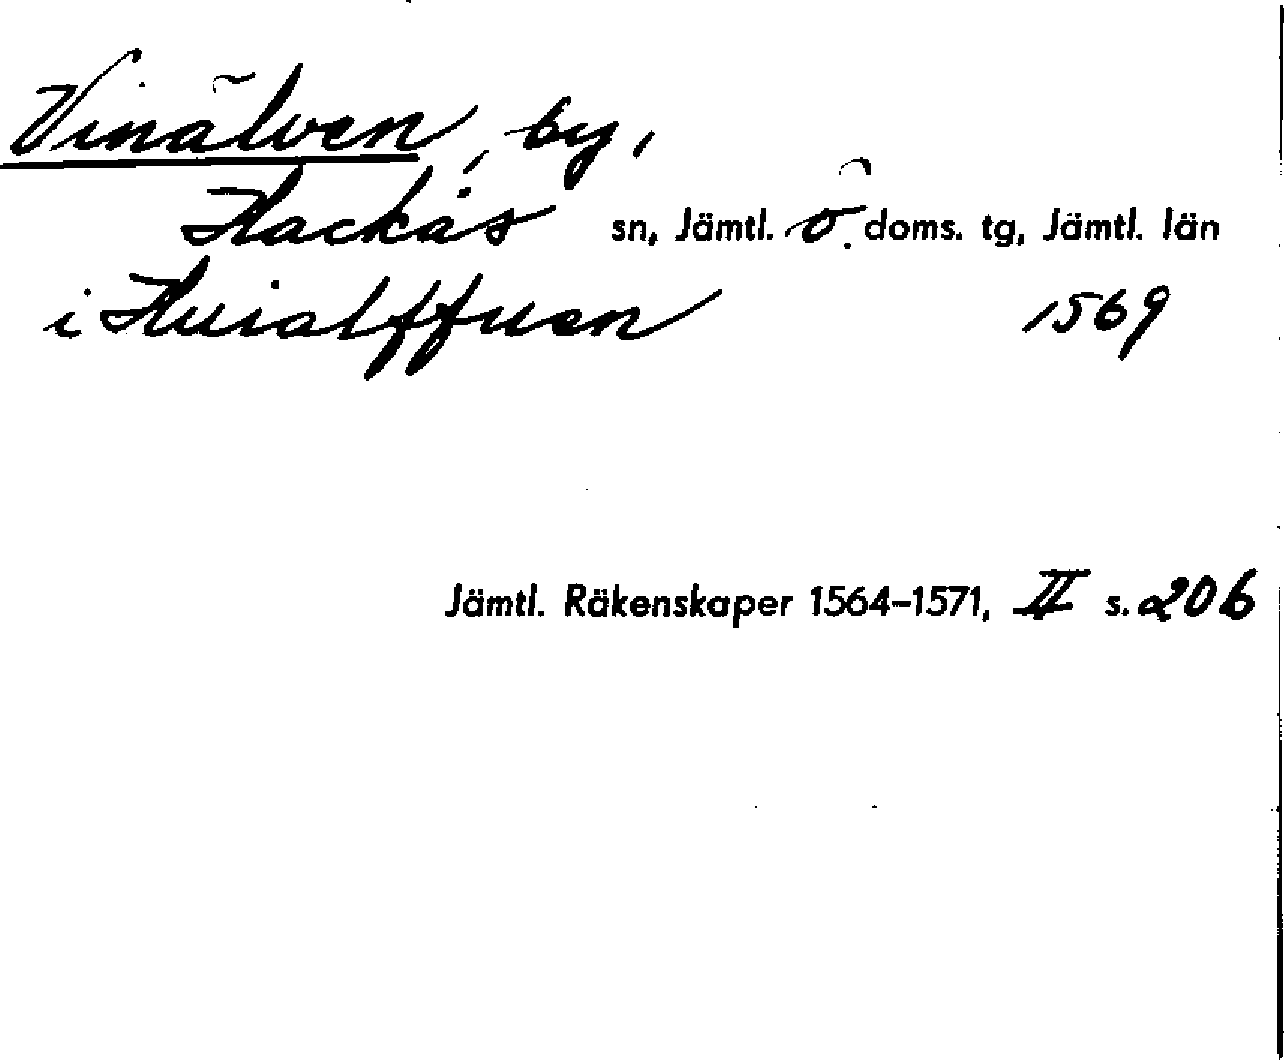 Vinälven, by,
Hackås sn, Jämtl. ö. doms. tg, Jämtl. län
i Huialffuen 1569
Jämtl. Räkenskaper 1564–1571, II s. 206